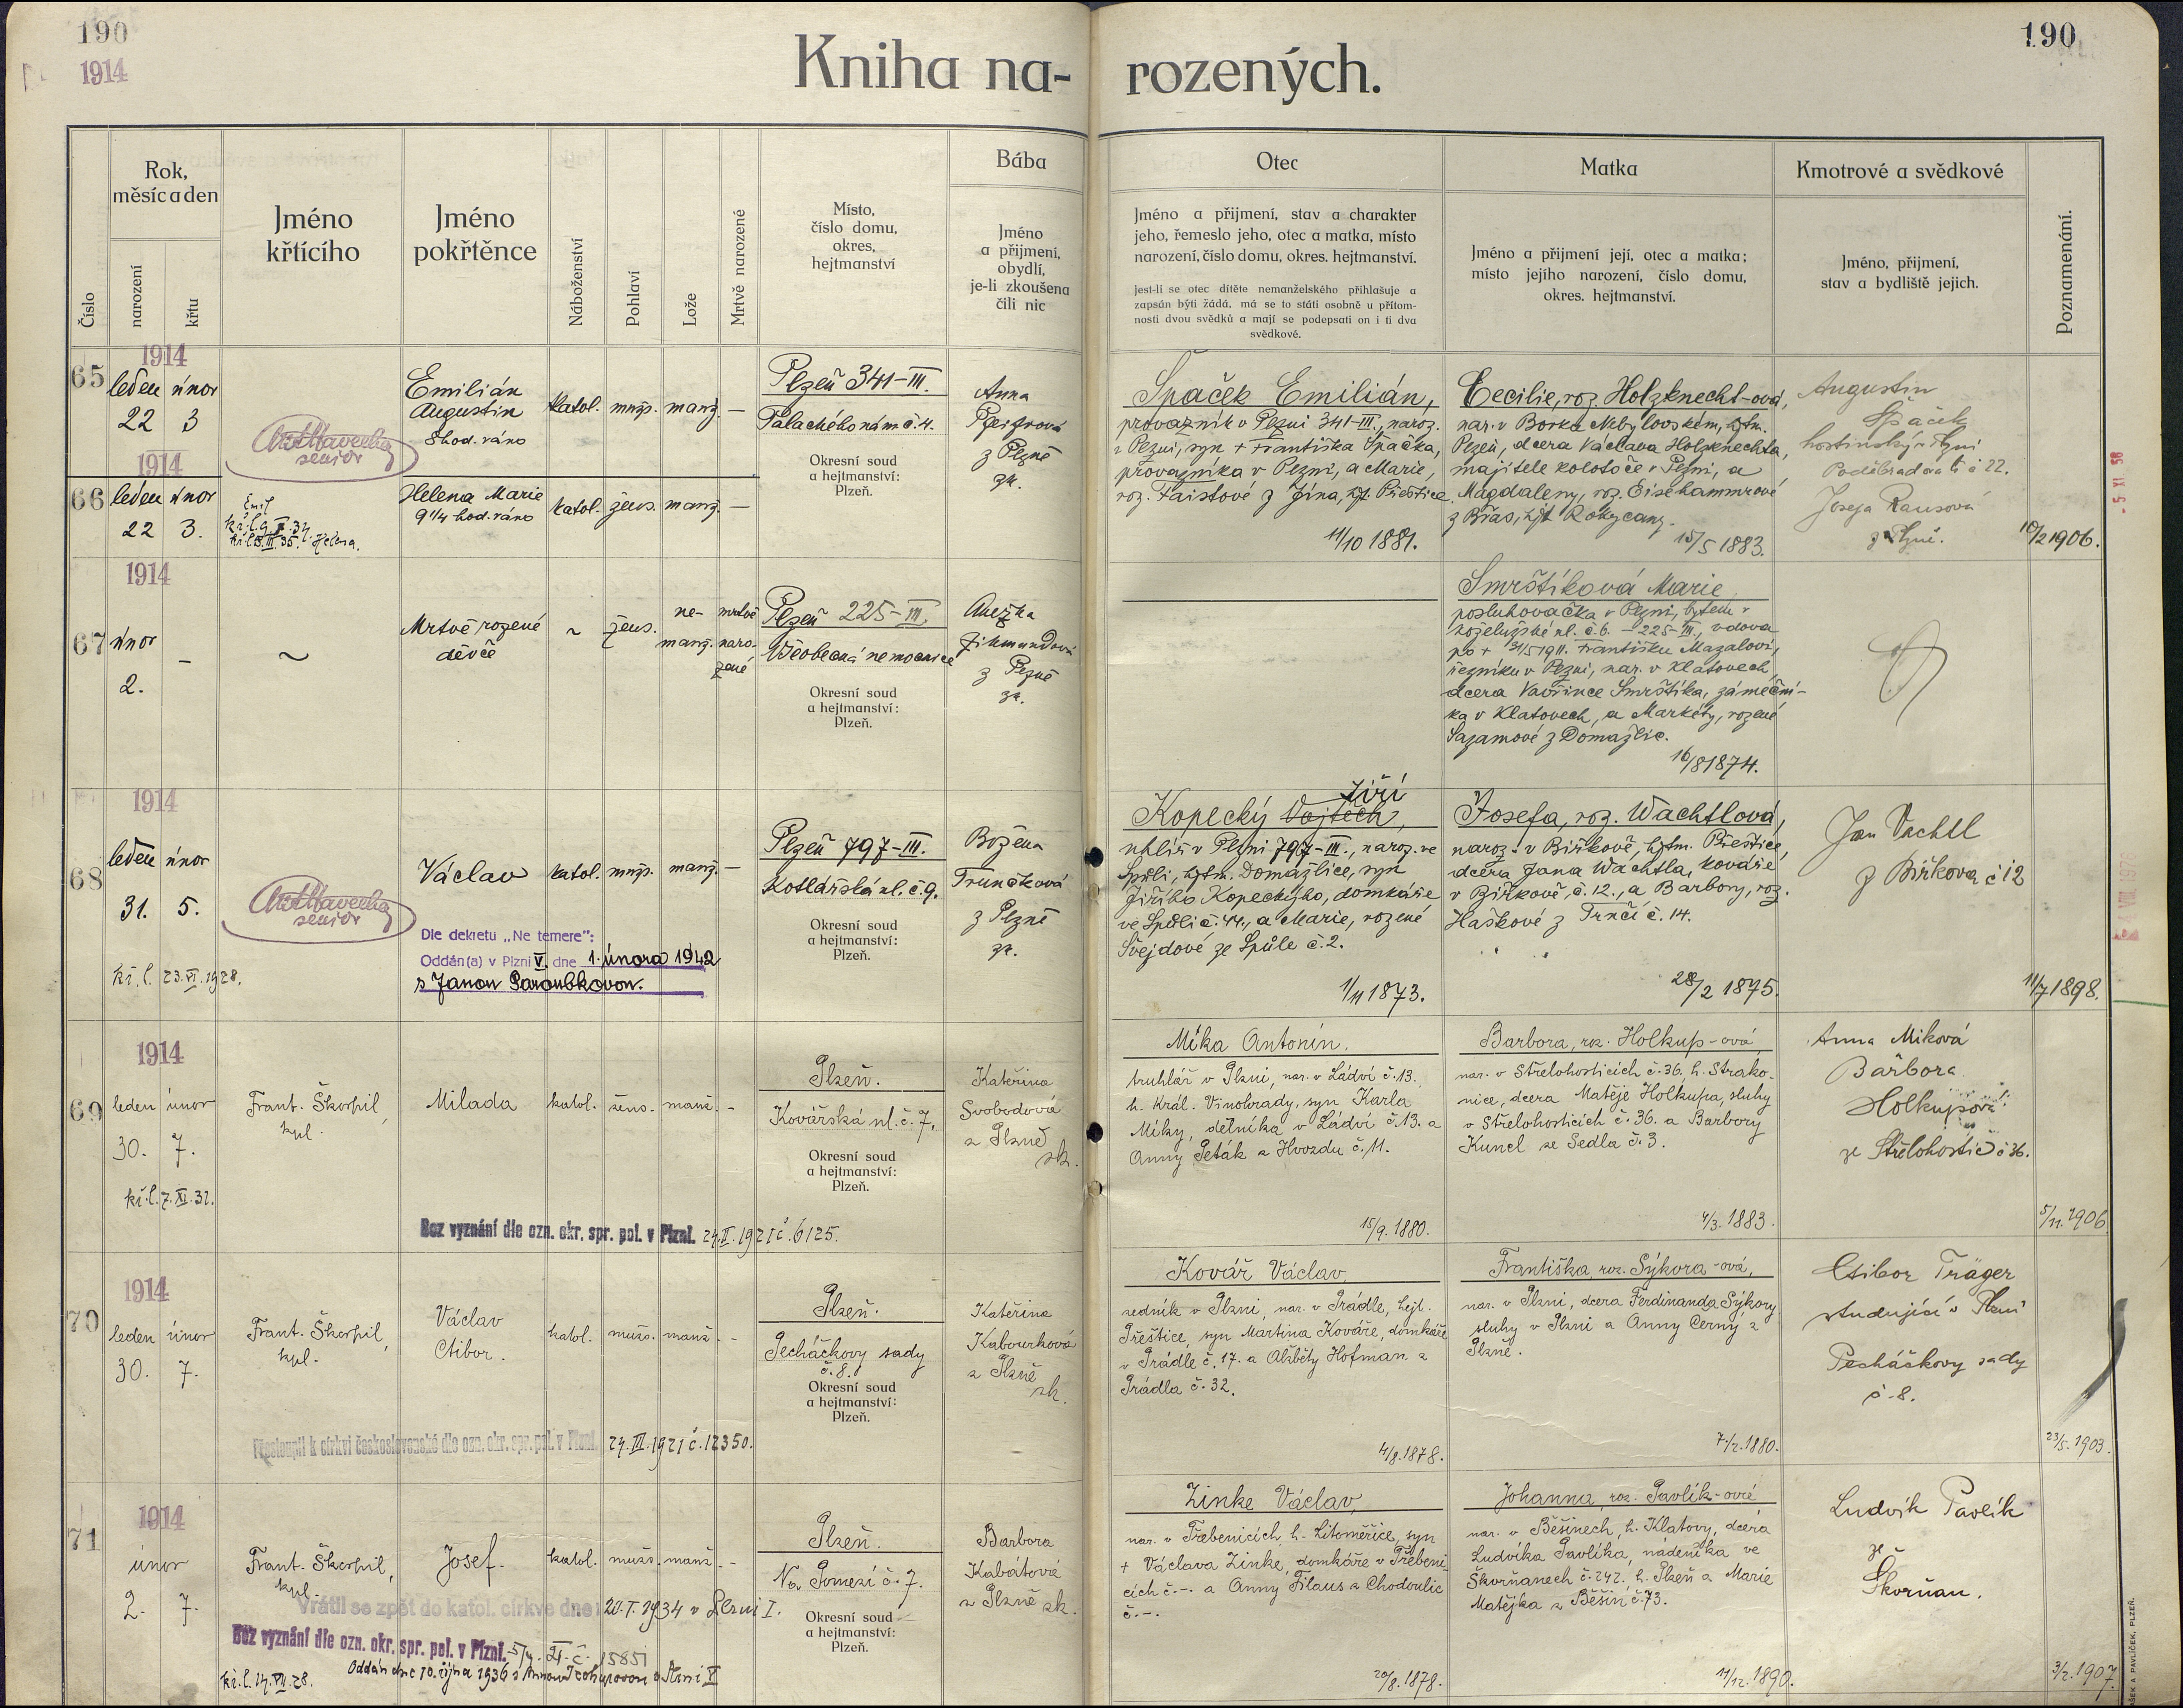 190
1914
Kniha na-
rozených.
190
Číslo
Rok,
měsíc a den
narození
křtu
Jméno
křtícího
Jméno
pokřtěnce
Náboženství
Pohlaví
Lože
Mrtvě narozené
Místo,
číslo domu,
okres,
hejtmanství
Bába
Jméno
a přijmení,
obydlí,
je-li zkoušena
čili nic
Otec
Jméno a přijmení, stav a charakter
jeho, řemeslo jeho, otec a matka, místo
narození, číslo domu, okres. hejtmanství.
Jest-li se otec dítěte nemanželského přihlašuje a
zapsán býti žádá, má se to státi osobně u přítom-
nosti dvou svědků a mají se podepsati on i ti dva
svědkové.
Matka
Jméno a přijmení její, otec a matka;
místo jejího narození, číslo domu,
okres. hejtmanství.
Kmotrové a svědkové
Jméno, přijmení,
stav a bydliště jejich.
Poznamenání.
1914
65
leden únor
22 3
senior
Emilián
Augustin
8 hod. ráno
katol. mužs. manž. —
Plzeň 341-III.
Palackého nám č. 4.
Okresní soud
a hejtmanství:
Plzeň.
Anna
z Plzně
zk.
Špaček Emilián,
provazník v Plzni 341-III., naroz.
v Plzni, syn + Františka Špačka,
provazníka v Plzni, a Marie,
roz. Faistové z Jína, hjt. Přeštice.
11/10 1881.
Cecilie, roz. Holzknecht-ová,
nar. v Borku Nebylovském, hjtm.
Plzeň, dcera Václava Holzknechta,
majitele kolotoče v Plzni, a
Magdaleny, roz. Eisehammrové
z Břas, hjt Rokycany.
15/5 1883.
Augustin
Špaček
hostinský v Plzni
Poděbradova tř. č 22.
Josefa Rausová
z Plzně.
10/2 1906.
1914
66
leden únor
22 3.
Emil
Helena.
Helena Marie
9 1/4 hod. ráno
katol. žens. manž. —
1914
67
únor
2.
—
~
Mrtvě rozené
děvče
~
žens.
ne-
manž.
mrtvě
naro-
zené
Plzeň 225-III.
Všeobecná nemocnice
Okresní soud
a hejtmanství:
Plzeň.
Anežka
Zikmundová
z Plzně
zk.
Smrštíková Marie,
posluhovačka v Plzni, bytem v
koželužské ul. č. 6. — 225-III., vdova
po + 31/5 1911. Františku Mazalovi,
řezníku v Plzni, nar. v Klatovech
dcera Vavřince Smrštíka, zámeční-
ka v Klatovech, a Markéty, rozené
Sazamové z Domažlic.
16/8 1874.
1914
68
leden únor
31. 5.
kř. l. 23. VI. 1928.
senior
Václav
katol. mužs. manž. —
Dle dekretu „Ne temere":
Oddán(a) v Plzni V. dne 1. února 1942
s Janou Paroubkovou.
Plzeň 797-III.
Kotlářská ul. č. 9.
Okresní soud
a hejtmanství:
Plzeň.
Božena
Trunčková
z Plzně
zk.
Jiří
Kopecký Vojtěch,
uhlíř v Plzni 797-III., naroz. ve
Spůli, hjtm. Domažlice, syn
Jiřího Kopeckýho, domkáře
ve Spůli č. 44., a Marie, rozené
Švejdové ze Spůle č. 2.
1/11 1873.
Josefa, roz. Wachtlová,
naroz. v Biřkově, hjtm. Přeštice,
dcera Jana Wachtla, kováře
v Biřkově, č. 12., a Barbory, roz.
Haškové z Trnčí č. 14.
28/2 1875.
Jan Vachtl
z Biřkova č 12
11/7 1898.
1914
69
leden únor
30. 7.
kř. l. 7. XI. 32.
Frant. Škorpil,
kpl.
Milada
katol. žens. manž. -
Bez vyznání dle ozn. okr. spr. pol. v Plzni. 24. II. 1921 č. 6125.
Plzeň.
Kovářská ul. č. 7.
Okresní soud
a hejtmanství:
Plzeň.
Kateřina
Svobodová
z Plzně
zk.
Míka Antonín.
truhlář v Plzni, nar. v Ládví č. 13.
h. Král. Vinohrady, syn Karla
Míky, dělníka v Ládví č. 13. a
Anny Peták z Hvozdu č. 11.
15/9. 1880.
Barbora, roz. Holkup-ová
nar. v Střelohosticích č. 36. h. Strako-
nice, dcera Matěje Holkupa, sluhy
v Střelohosticích č. 36. a Barbory
Kuncl ze Sedla č. 3.
4/3. 1883.
Anna Miková
Barbora
Holkupová
ze Střelohostic č 36.
5/11. 1906
1914
70
leden únor
30. 7.
Frant. Škorpil,
kpl.
Václav
Ctibor.
katol. mužs. manž. -
Přestoupil k církvi československé dle ozn. okr. spr. pol. v Plzni. 24. III. 1921 č. 12350.
Plzeň.
Pecháčkovy sady
č. 8.
Okresní soud
a hejtmanství:
Plzeň.
Kateřina
Kabourková
z Plzně
zk.
Kovář Václav,
zedník v Plzni, nar. v Prádle, hejt.
Přeštice, syn Martina Kováře, domkáře
v Prádle č. 17. a Alžběty Hofman z
Prádla č. 32.
4/8. 1878.
Františka, roz. Sýkora-ová,
nar. v Plzni, dcera Ferdinanda Sýkory
sluhy v Plzni a Anny Černy z
Plzně.
7/2. 1880.
Ctibor Träger
studující v Plzni
Pecháčkovy sady
č. 8.
23/5. 1903.
1914
71
únor
2. 7.
Frant. Škorpil,
kpl.
Josef.
katol. mužs. manž. -
Vrátil se zpět do katol. církve dne 20. I. 1934 v Plzni I.
Bez vyznání dle ozn. okr. spr. pol. v Plzni.
Oddán dne 10. října 1936 s Annou
v Plzni V
kř. l. 14. VII. 28.
Plzeň.
Na Pomezí č. 7.
Okresní soud
a hejtmanství:
Plzeň.
Barbora
Kabátová
z Plzně zk.
Zinke Václav,
nar. v Třebenicích, h. Litoměřice, syn
+ Václava Zinke, domkáře v Třebeni-
cích č. -. a Anny Filaus z Chodoulic
č. -.
20/8. 1878.
Johanna, roz. Pavlík-ová
nar. v Běšinech, h. Klatovy, dcera
Ludvíka Pavlíka, nádeníka ve
Škorňanech č. 242. h. Plzeň a Marie
Matějka z Běšin č. 73.
11/12. 1890.
Ludvík Pavlík
ze
Škorňan.
3/2. 1907.